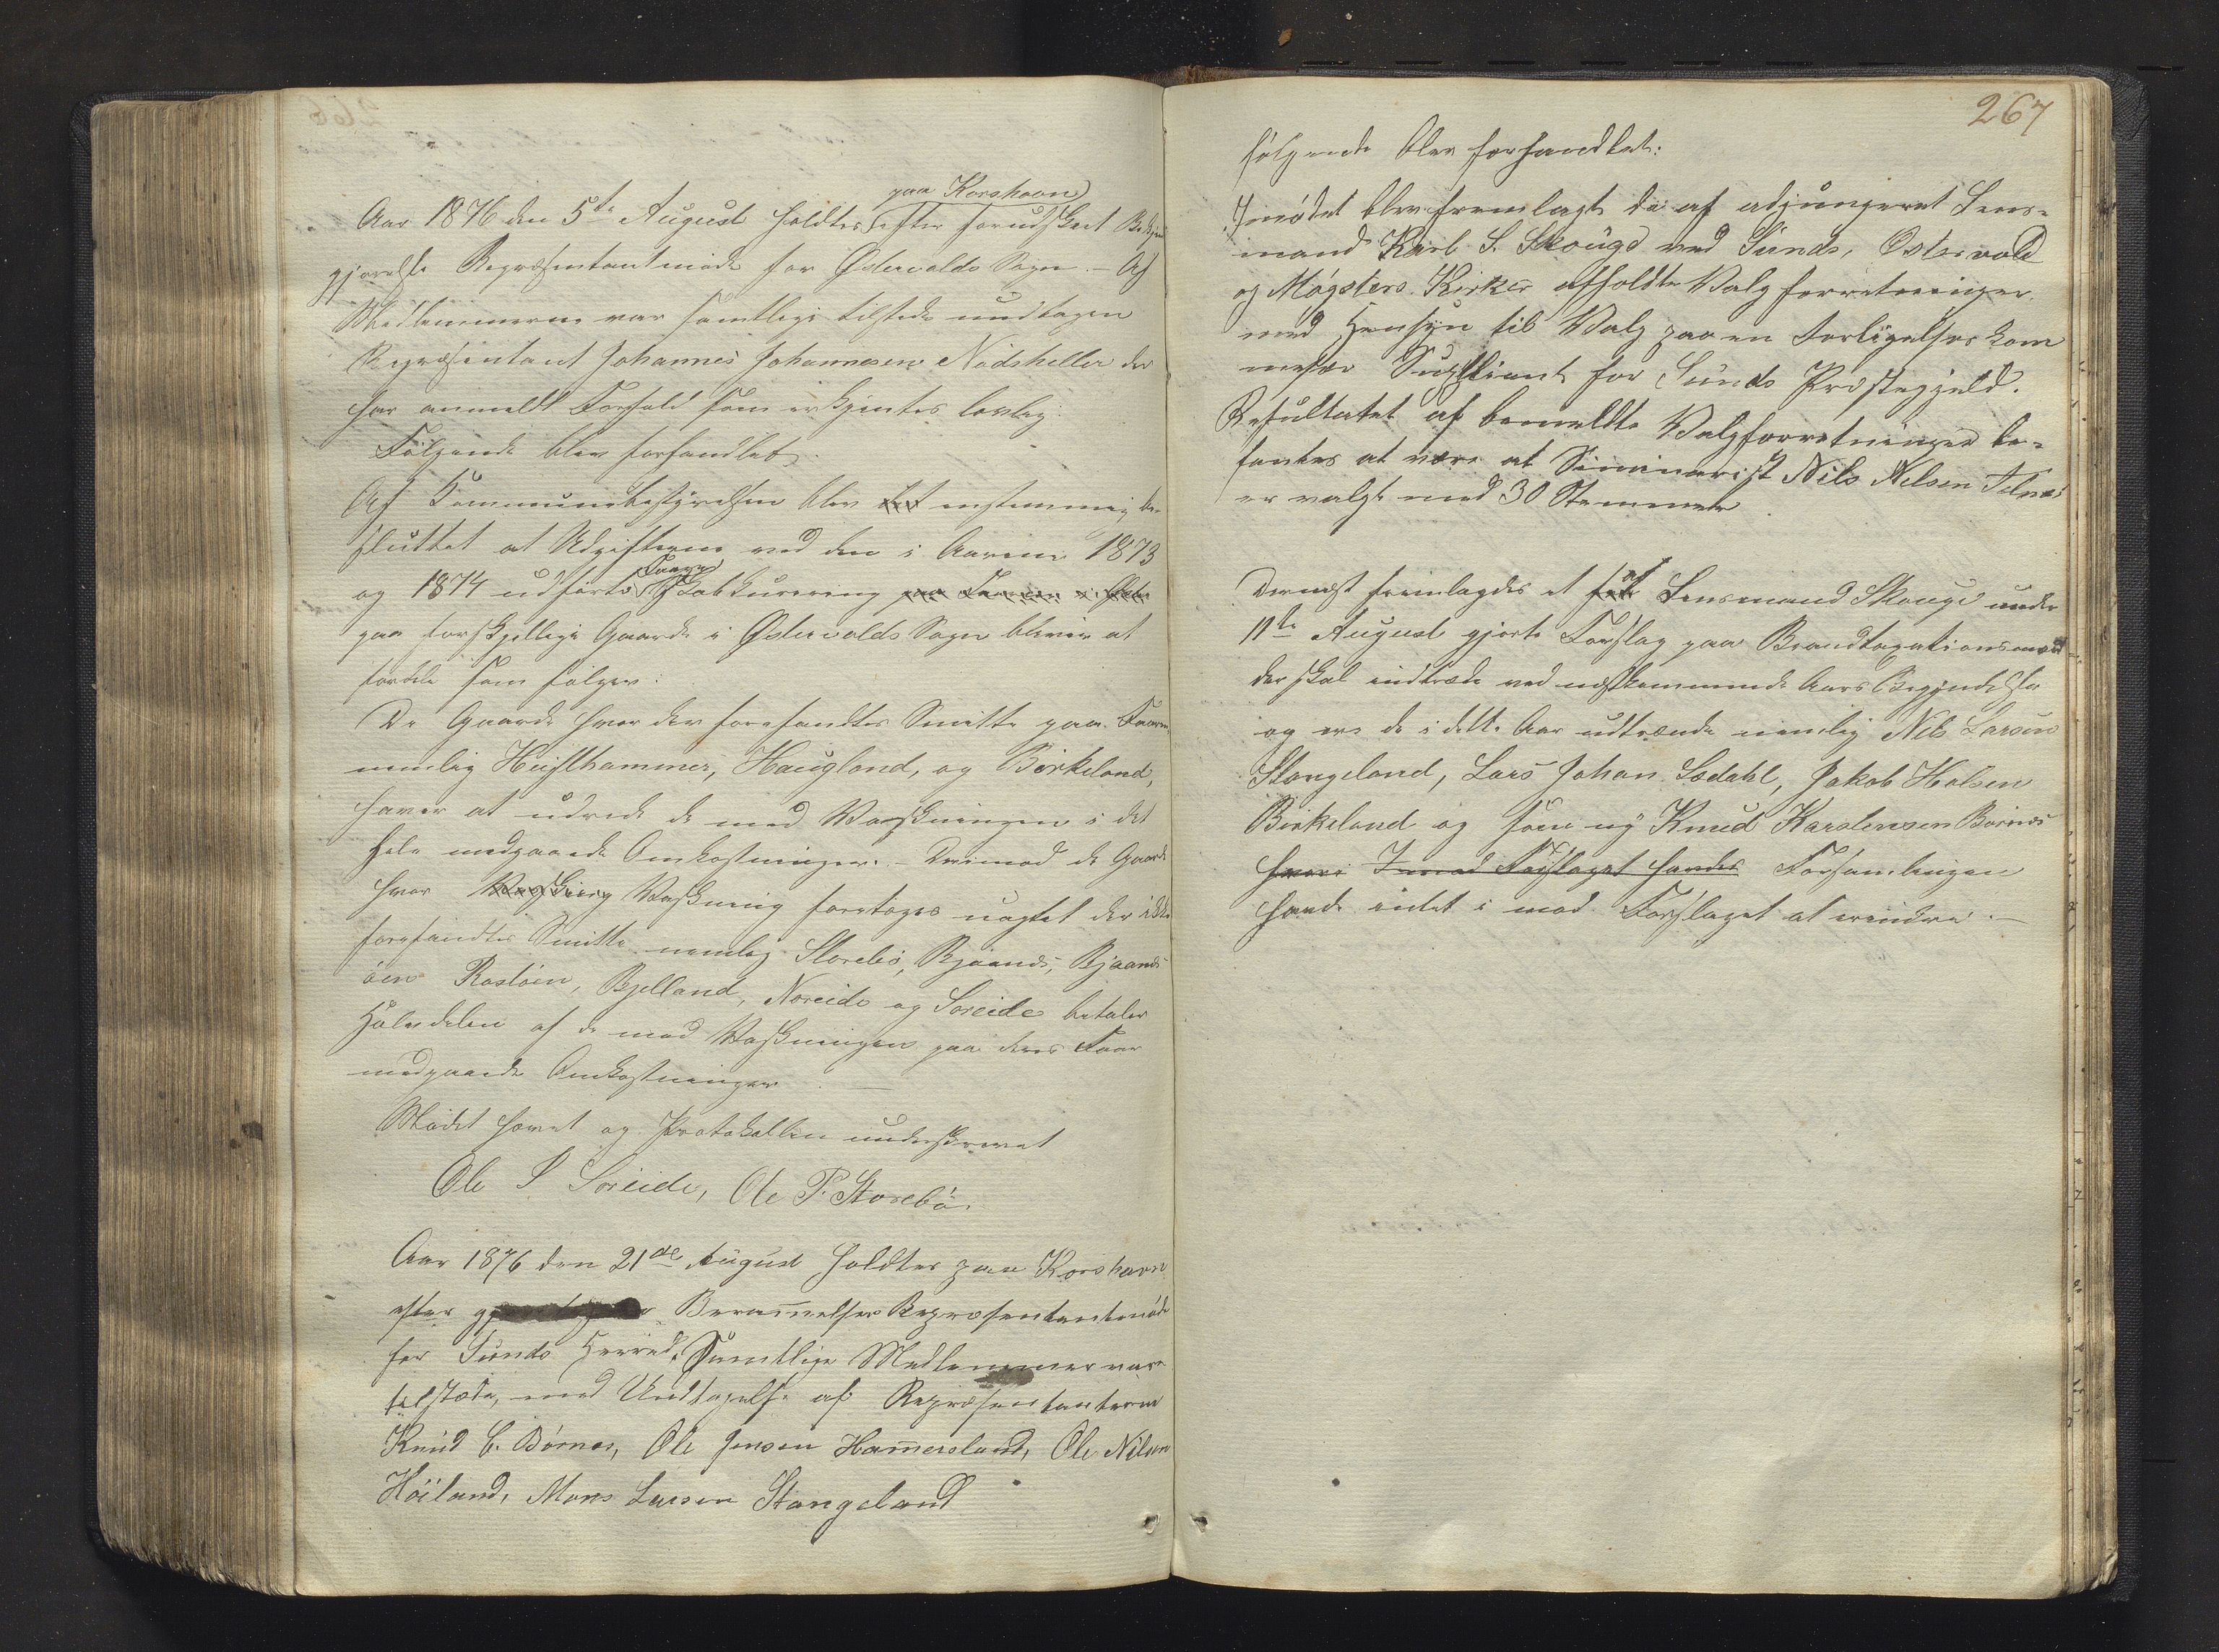 Aar 1876 den 5te August holdtes paa Korshavn efter forudskeet Bekjendt
gjørelse Repræsentantmøde for Østervolds Sogn. – Af
Medlemmerne var samtlige tilstede undtagen
Repræsentant Johannes Johannesen Nødsheller der
har anmeldt Forfald som erkjentes lovlig.
Følgende blev forhandlet.
Af Kommunebestyrelsen blev det enstemmig be-
sluttet at Udgifterne ved den i Aarene 1873
og 1874 udførte Faare Skabkurering paa
paa forskjellige Gaarde i Østervolds Sogn bliver at
fordele som følger:
De Gaarde hvor der forefandtes Smitte paa Faarene
nemlig Heuflhammer, Haugland, og Birkeland,
haver at udrede de med Vaskningen i det
hele medgaaede Omkostninger. – Derimod de Gaarde
hvor Vaskning Vaskning foretoges uagtet der ikke
forefandtes Smitte nemlig Storebø, Bjaanæs, Bjaanæs
øen Rostøen, Bjelland, Noreide og Søreide betaler
Halvdelen af de med Vaskningen paa deres Faar
medgaaede Omkostninger. —
Mødet hævet og Protokollen underskrevet
Ole P Søreide, Ole P. Storebø.
Aar 1876 den 21de August holdtes paa Korshavn
efter Berammelse Repræsentantmøde
for Sunds Herred. Samtlige Medlemmer vare
tilstæde, med Undtagelse af Repræsentanterne
Knud C. Børnes, Ole Jensen Hammersland, Ole Nilsen
Høiland, Mons Larsen Stangeland
267
følgende blev forhandlet:
I mødet blev fremlagt de af adjungeret Lens-
mand Karl S. Skouge ved Sunds, Østervold
og Møgsters Kirker afholdte Valgforretninger
med Hensyn til Valg paa en Forligelseskom
misær Supliant for Sunds Præstegjeld.
Resultatet af bemeldte Valgforretninger be-
fantes at være at Seminarist Nils Nilsen Telnæs
er valgt med 30 Stemmer
Dernæst fremlagdes et af Lensmand Skouge under
11te August gjorte Forslag paa Brandtaxationsmænd
der skal indtræde ved næstkommende Aars Begyndelse
og ere de i dette Aar udtrædende nemlig Nils Larsen
Stangeland, Lars Johan Lædahl, Jakob Halsen
Birkeland og som ny Knud Karstensen Børnes
hvori Imod Forslaget havdes Forsamlingen
havde intet i mod Forslaget at erindre. —